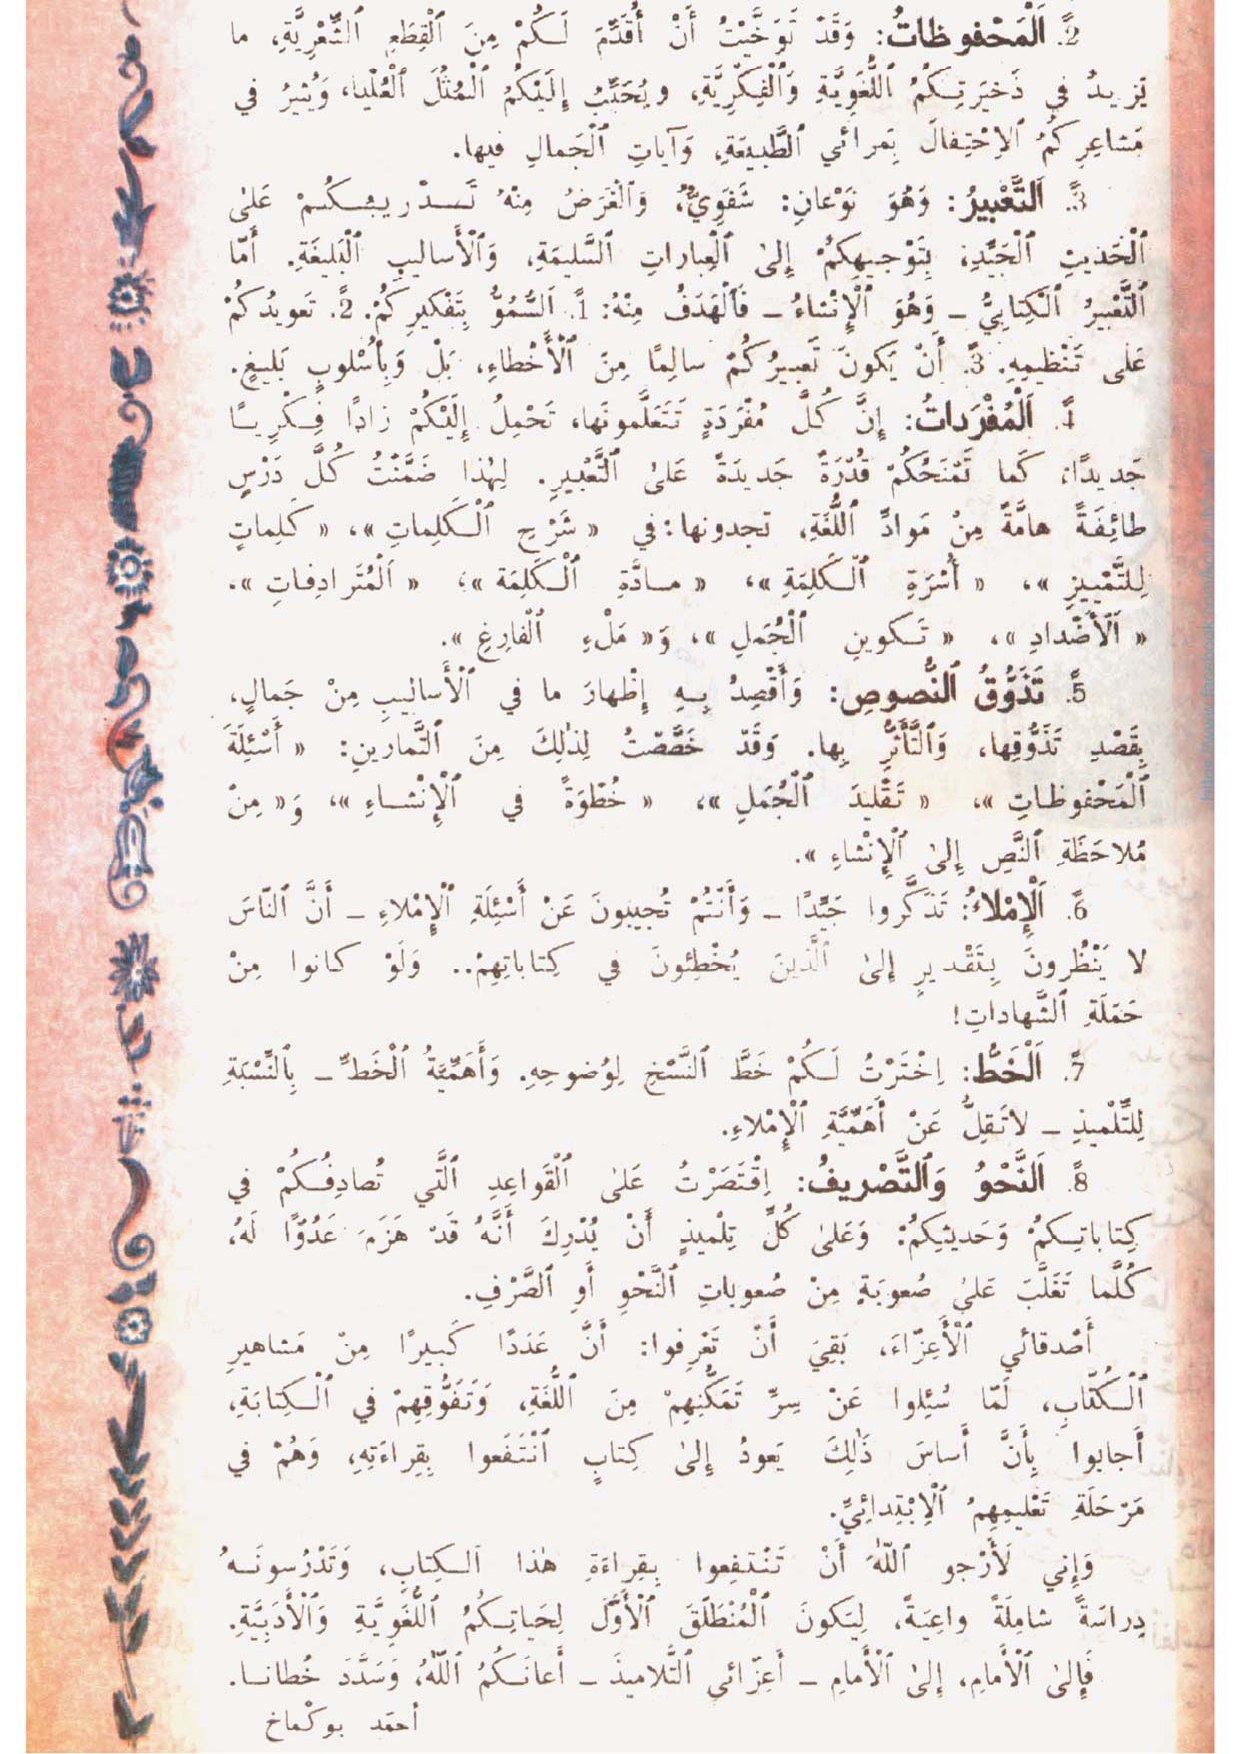 2ً. اَلْمَحْفوظاتُ: وَقَدْ تَوَخَّيْتُ أَنْ أُقَدِّمَ لَـكُمْ مِنَ ٱلْقِطَعِ ٱلشِّعْرِيَّةِ، ما
يَزيدُ في ذَخيرَتِـكُمُ ٱللُّغَوِيَّةِ وَٱلْفِكْرِيَّةِ، ويُحَبِّبُ إِلَيْكُمُ ٱلْمُثُلَ ٱلْعُلْيا، وَيُثيرُ في
مَشاعِرِكُمُ ٱلاِحْتِفالَ بِمَرائي ٱلطَّبيعَةِ، وَآياتِ ٱلْجَمالِ فيها.
3ً. اَلتَّعْبيرُ: وَهُوَ نَوْعانِ: شَفَوِيٌّ؛ وَٱلْغَرَضُ مِنْهُ تَـدْريبُـكُمْ عَلىٰ
ٱلْحَديثِ ٱلْجَيِّدِ، بِتَوْجيهِكُمْ إِلىٰ ٱلْعِباراتِ ٱلسَّليمَةِ، وَٱلْأَساليبِ ٱلْبَليغَةِ. أَمّا
ٱلتَّعْبيرُ ٱلْكِتابِيُّ ـ وَهُوَ ٱلْإِنْشاءُ ـ فَٱلْهَدَفُ مِنْهُ: 1ً. اَلسُّمُوُّ بِتَفْكيرِكُمْ. 2ً. تَعويدُكُمْ
عَلى تَنْظيمِهِ. 3ً. أَنْ يَكونَ تَعبيرُكُمْ سالِمًا مِنَ ٱلْأَخْطاءِ، بَلْ وَبِأُسْلوبٍ بَليغٍ.
4ً. اَلْمُفْرَداتُ: إِنَّ كُلَّ مُفْرَدَةٍ تَتَعَلَّمونَها، تَحْمِلُ إِلَيْكُمْ زادًا فِـكْرِيـًا
جَديدًا؛ كَما تَمْنَحُكُمْ قُدْرَةً جَديدَةً عَلىٰ ٱلتَّعْبيرِ. لِهٰذا ضَمَّنْتُ كُلَّ دَرْسٍ
طائِفَةً هامَّةً مِنْ مَوادِّ اللُّغَةِ، تجدونها: في « شَرْحِ ٱلْـكَلِماتِ »، « كَلِماتٍ
لِلتَّمْييزِ »، « أُسْرَةِ ٱلْـكَلِمَةِ »، « مـادَّةِ ٱلْـكَلِمَة »، « اَلْمُتَرادِفاتِ ».
« اَلْأَضْدادِ »، « تَـكوينِ ٱلْجُمَلِ »، وَ« مَلْءِ ٱلْفارِغِ ».
5ً. تَذَوُّقُ ٱلنُّصوصِ: وَأَقْصِدُ بِـهِ إِظْهارَ ما في ٱلْأَساليبِ مِنْ جَمالٍ،
بِقَصْدِ تَذَوُّقِها، وَٱلتَّأَثُّرِ بِها. وَقَدْ خَصَّصْتُ لِذٰلِكَ مِنَ ٱلتَّمارينِ: « أَسْئِلَةَ
ٱلْمَحْفوظـاتِ »، « تَقْليدَ ٱلْجُمَلِ »، « خُطْوَةً في ٱلْإِنْشـاءِ »، وَ« مِنْ
مُلاحَظَةِ ٱلنَّصِ إِلىٰ ٱلْإِنْشاءِ ».
6ً. اَلْإِمْلاءُ: تَذَكَّروا جَيِّدًا ـ وَأَنْتُمْ تُجيبونَ عَنْ أَسْئِلَةِ ٱلْإِمْلاءِ ـ أَنَّ ٱلنّاسَ
لا يَنْظُرونَ بِتَقْديرٍ إِلىٰ ٱلَّذينَ يُخْطِئونَ في كِتاباتِهِمْ.. وَلَوْ كانوا مِنْ
حَمَلَةِ ٱلشَّهاداتِ!
7ً. اَلْخَطُّ: اِخْتَرْتُ لَـكُمْ خَطَّ ٱلنَّسْخِ لِوُضوحِهِ. وَأَهَمِّيَّةُ ٱلْخَطِّ ـ بِٱلنِّسْبَةِ
لِلتِّلْميذِ ـ لاتَقِلُّ عَنْ أَهَمِّيَّةِ ٱلْإِمْلاءِ.
8ً. اَلنَّحْوُ وَٱلتَّصْريفُ: اِقْتَصَرْتُ عَلىٰ ٱلْقَواعِدِ ٱلَّتي تُصادِفُـكُمْ في
كِتاباتِـكُمْ وَحَديثِكُمْ: وَعَلىٰ كُلِّ تِلْميذٍ أَنْ يُدْرِكَ أَنَّهُ قَدْ هَزَمَ عَدُوًّا لَهُ،
كُلَّما تَغَلَّبَ عَلىٰ صُعوبَةٍ مِنْ صُعوباتِ ٱلنَّحْوِ أَوِ ٱلصَّرْفِ.
أَصْدقائي ٱلْأَعِزّاءَ، بَقِيَ أَنْ تَعْرِفوا: أَنَّ عَدَدًا كَبيرًا مِنْ مَشاهيرِ
ٱلْـكُتّابِ، لَمّا سُئِلوا عَنْ سِرِّ تَمَكُّنِهِمْ مِنَ ٱللُّغَةِ، وَتَفَوُّقِهِمْ في ٱلْـكِتابَةِ،
أَجابوا بِأَنَّ أَساسَ ذٰلِكَ يَعودُ إِلىٰ كِتابٍ ٱنْتَفَعوا بِقِراءَتِهِ، وَهُمْ في
مَرْحَلَةِ تَعْليمِهِمُ ٱلْاِبْتِدائِيِّ.
وَإِني لَأَرْجو ٱللّٰهَ أَنْ تَنْتَفِعوا بِقِراءَةِ هٰذا ٱلـكِتابِ، وَتَدْرُسونَـهُ
دِراسَةً شامِلَةً واعِيَةً، لِيَكونَ ٱلْمُنْطَلَقَ ٱلْأَوَّلَ لِحَياتِـكُمُ ٱللُّغَوِيَّةِ وَٱلْأَدَبِيَّةِ.
فَإِلىٰ ٱلْأَمامِ، إِلىٰ ٱلْأَمامِ ـ أَعِزّائي ٱلتَّلاميذَ ـ أَعانَـكُمُ ٱللّٰهُ، وَسَدَّدَ خُطانـا.
أحمَد بوكْماخ